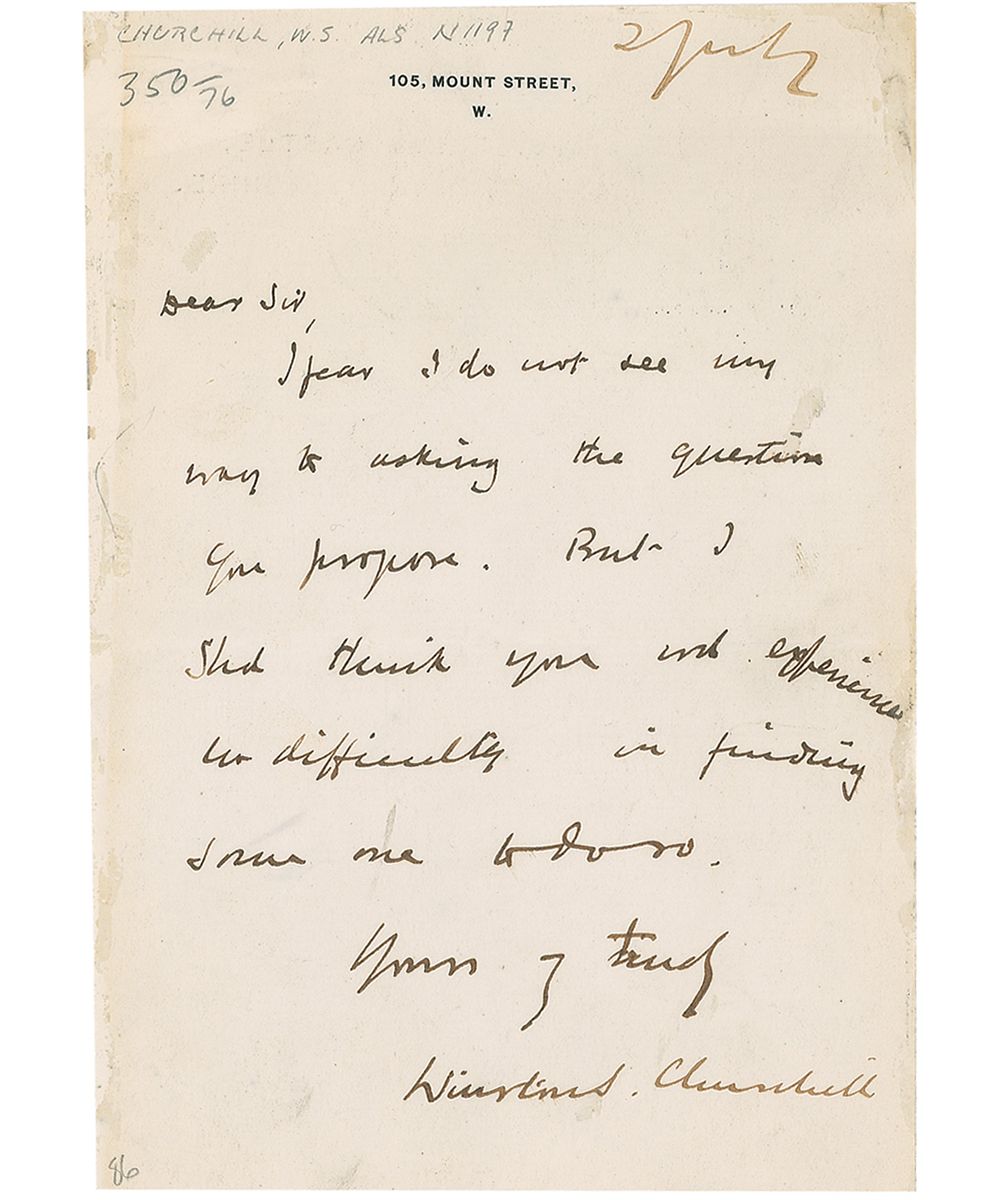 CHURCHILL, W.S. ALS N1197
2 July
350/76
105, MOUNT STREET,
W.
Dear Sir,
I fear I do not see my
way to asking the question
you propose. But I
Shd think you wd experience
no difficulty in finding
some one to do so.
Yours truly
Winston S. Churchill
86